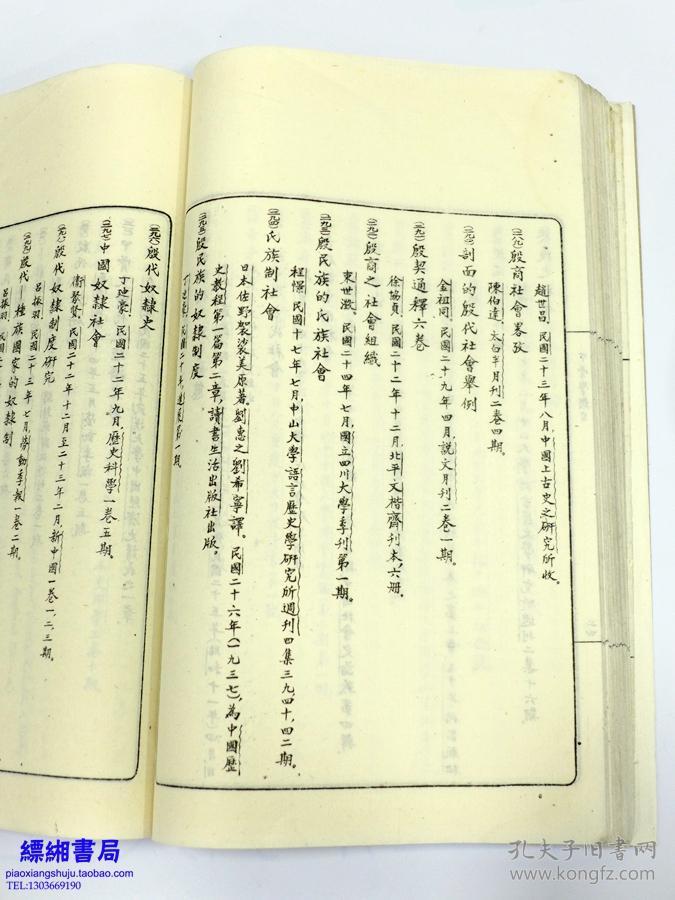 趙世昌，民國二十三年八月，中國上古史之研究所收。
(二八九)殷商社會畧攷
陳伯達，太白半月刊二卷四期。
剖面的殷代社會舉例
金祖同，民國二十九年四月，說文月刊二卷一期。
殷契通釋六卷
徐協貞，民國二十二年十二月，北平文楷齋刊本，六冊。
殷商之社會組織
東世澂，民國二十四年七月，國立四川大學季刊第一期。
殷民族的氏族社會
程憬，民國十七年七月，中山大學語言歷史學研究所週刊四集三九，四十，四二期。
氏族制社會
日本佐野袈裟美原著，劉惠之劉希寧譯。民國二十六年(一九三七)，為中國歷
史教程第一篇第二章，讀書生活出版社出版。
(二九五)殷民族的奴隸制度
丁迪豪，民國二十年
第一期。
(二九六)殷代奴隸史
丁迪豪，民國二十二年九月，歷史科學一卷五期。
中國奴隸社會
衛聚賢，民國二十二年十二月至二十三年二月，新中國一卷一，二，三期。
殷代奴隸制度研究
呂振羽，民國二十三年七月，勞動季報一卷二期。
殷代——種族國家的奴隸制
呂振羽，民國
縹緗書局
piaoxiangshuju.taobao.com
TEL:1303669190
孔夫子旧书网
www.kongfz.com